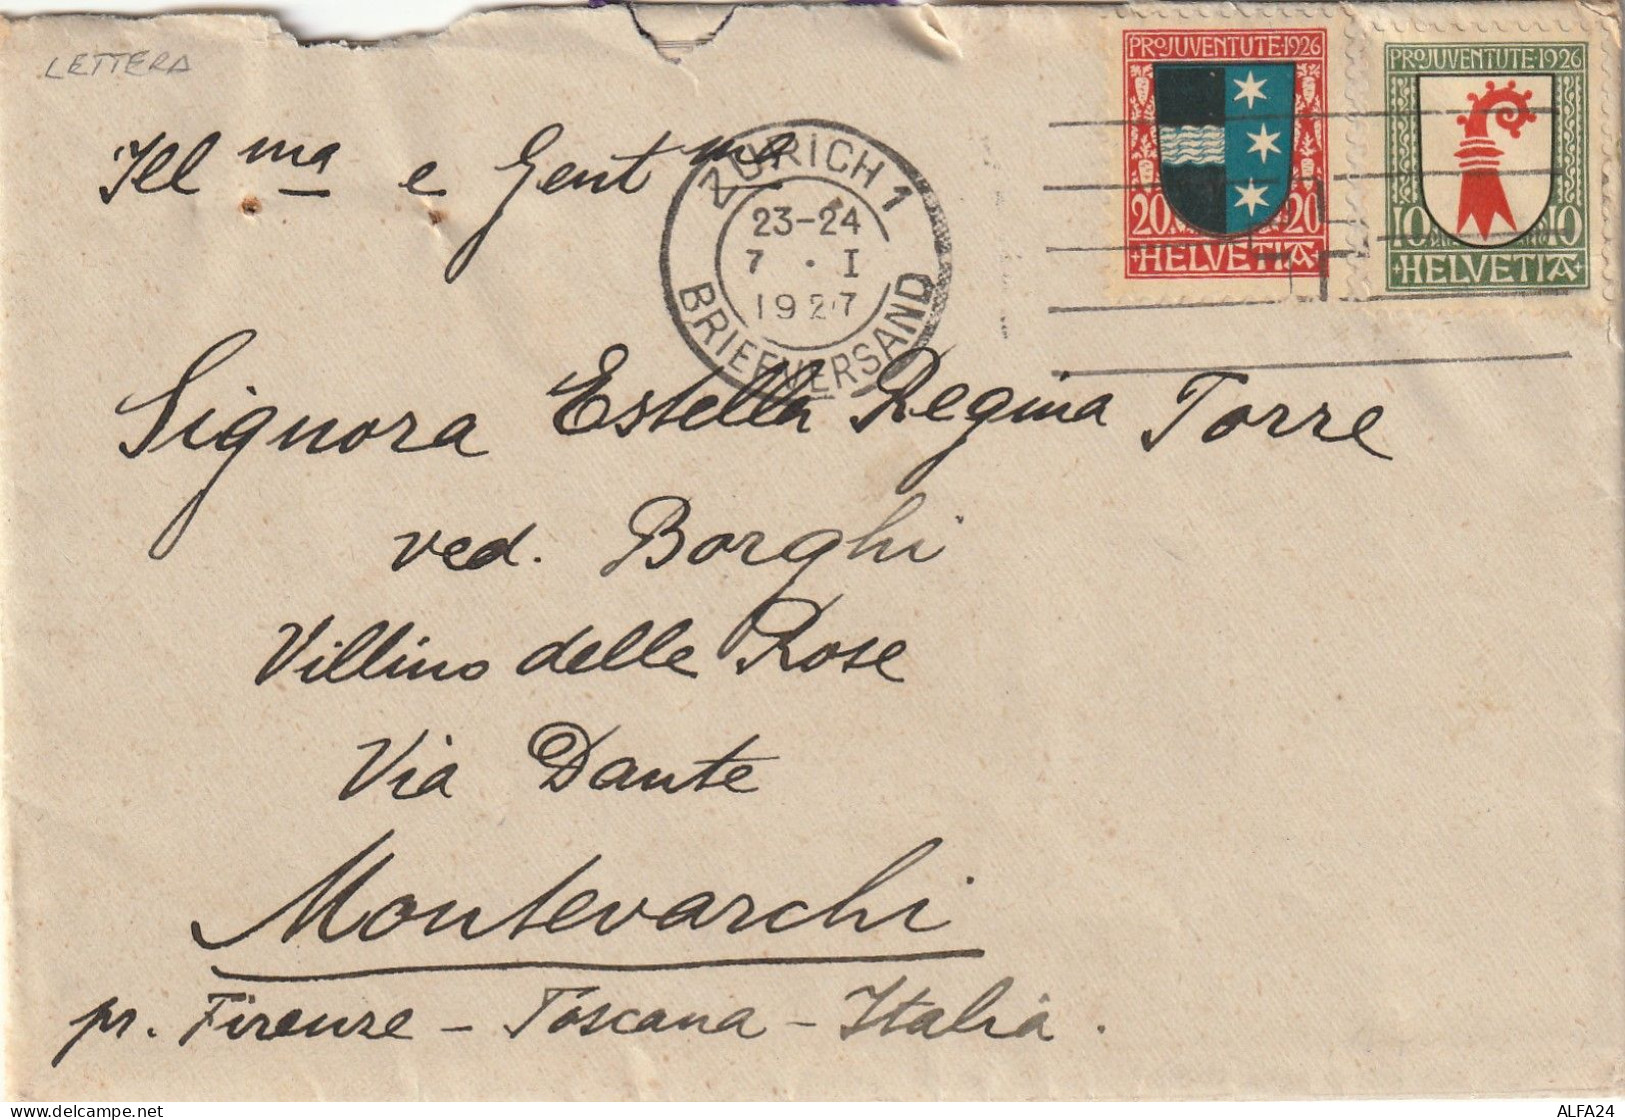 LETTERA
PRO JUVENTUTE·1926
20 20
+HELVETIA+
PRO JUVENTUTE·1926
10 10
+HELVETIA+
ZÜRICH 1
23-24
7 · I
1927
BRIEFVERSAND
Ill ma e Gent ma
Signora Estella Regina Torre
ved. Borghi
Villino delle Rose
Via Dante
Montevarchi
pr. Firenze - Toscana - Italia.
delcampe.net
ALFA24